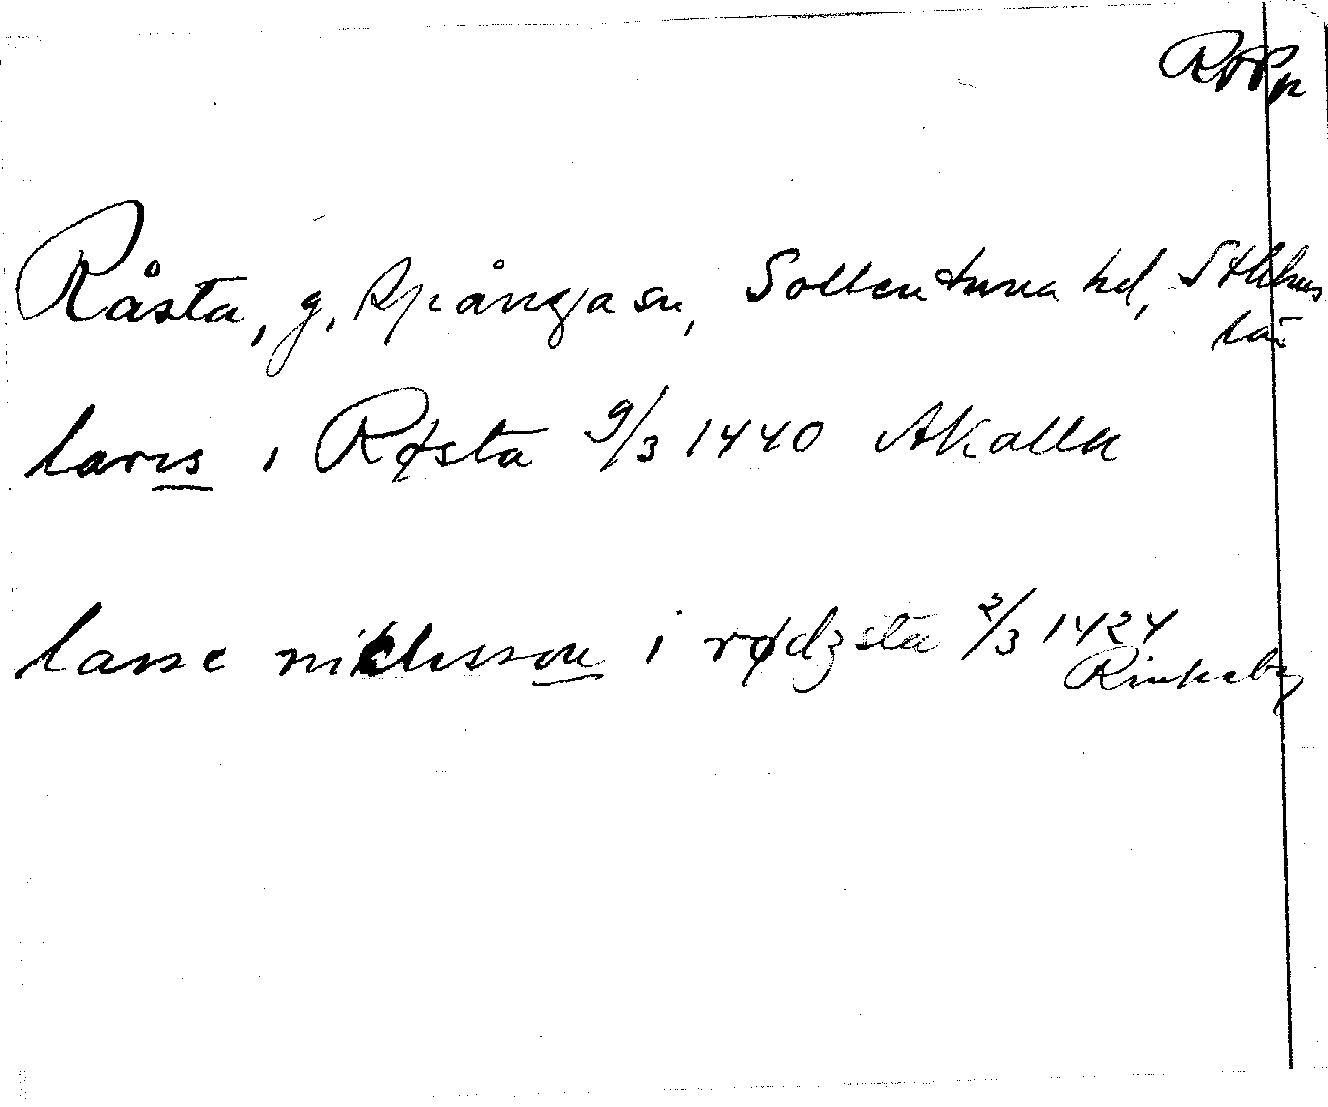 RAPp
Råsta, g, Spånga sn, Sollentuna hd, Sthlms
län
laris i Røsta 9/3 1440 Akalla
lasse niclisson i rødzsta 2/3 1424
Rinkeby